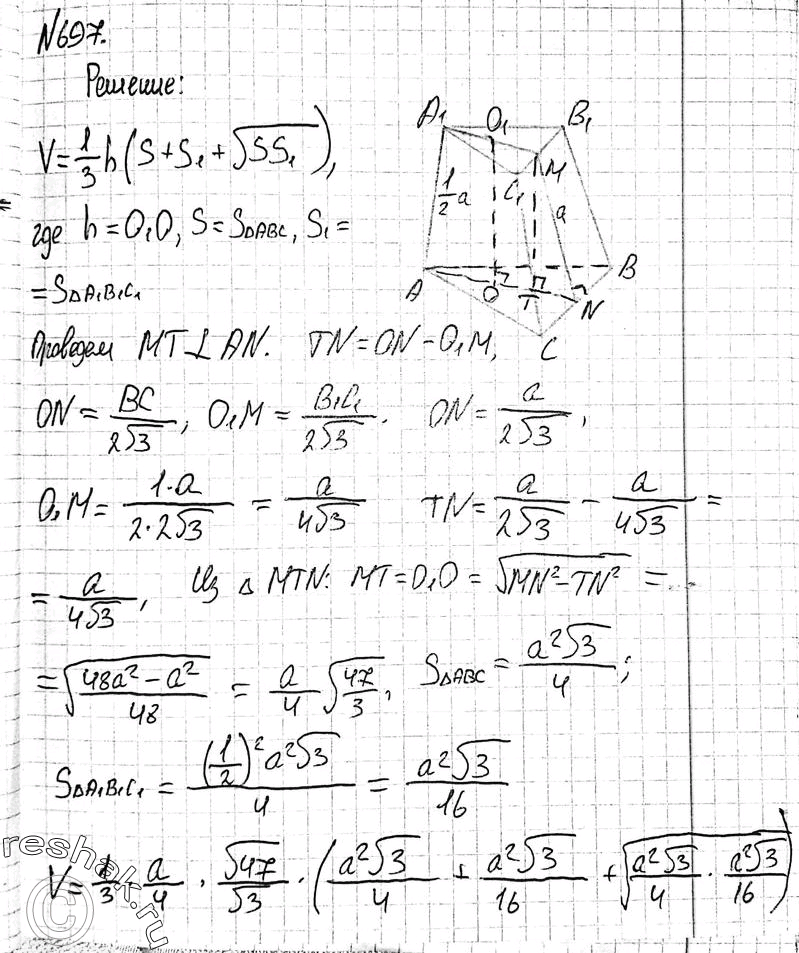 №697.
Решение:
V=1/3 h(S+S₁+√(SS₁)),
где h=O₁O, S=S△ABC, S₁=
=S△A₁B₁C₁
A₁ O₁ B₁
M
C₁
1/2 a
a
A O T N B
C
Проведем MT⊥AN. TN=ON-O₁M,
ON= BC/(2√3); O₁M= B₁C₁/(2√3). ON= a/(2√3),
O₁M= (1·a)/(2·2√3) = a/(4√3) TN= a/(2√3) - a/(4√3) =
= a/(4√3), Из △MTN: MT=O₁O=√(MN²-TN²) =
=√((48a²-a²)/48) = a/4 √(47/3), S△ABC= (a²√3)/4;
S△A₁B₁C₁= ((1/2)² a²√3)/4 = (a²√3)/16
V= 1/3 · a/4 · √47/√3 · ((a²√3)/4 + (a²√3)/16 + √((a²√3)/4 · (a²√3)/16))
reshak.ru
©